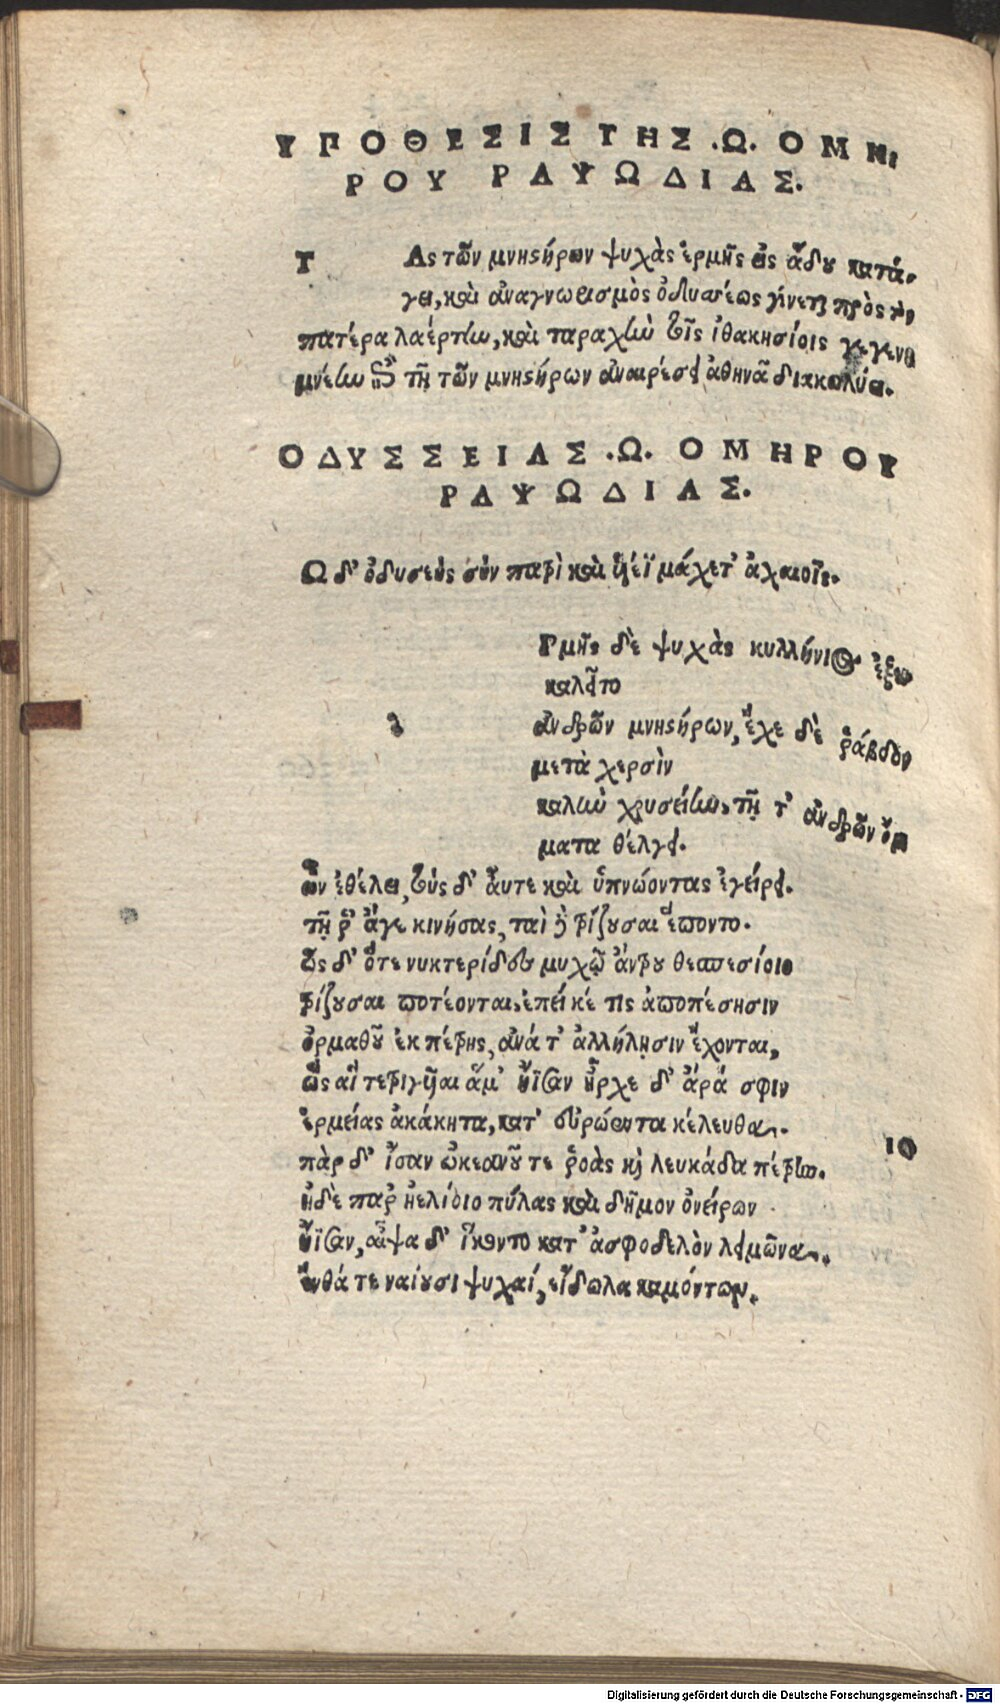 ΥΠΟΘΕΣΙΣ ΤΗΣ .Ω. ΟΜΗ
ΡΟΥ ΡΑΨΩΔΙΑΣ.
Τ Ας τῶν μνηστήρων ψυχὰς ἑρμῆς εἰς ἅδου κατά-
γει, καὶ ἀναγνωρισμὸς ὀδυσσέως γίνεται πρὸς τὸν
πατέρα λαέρτην, καὶ ταραχὴν τοῖς ἰθακησίοις γεγενη
μένην ἐπὶ τῇ τῶν μνηστήρων ἀναιρέσει ἀθηνᾶ διακωλύει.
ΟΔΥΣΣΕΙΑΣ .Ω. ΟΜΗΡΟΥ
ΡΑΨΩΔΙΑΣ.
Ω δ' ὀδυσεὺς σὺν πατρὶ καὶ υἱέϊ μάχετ' ἀχαιοῖς.
Ρμῆς δὲ ψυχὰς κυλλήνιος ἐξε
καλεῖτο
ἀνδρῶν μνηστήρων, ἔχε δὲ ῥάβδον
μετὰ χερσὶν
καλὴν χρυσείην, τῇ τ' ἀνδρῶν ὄμ
ματα θέλγει.
ὧν ἐθέλει, τοὺς δ' αὖτε καὶ ὑπνώοντας ἐγείρει.
τῇ ῥ' ἄγε κινήσας, ταὶ δὲ τρίζουσαι ἕποντο.
ὡς δ' ὅτε νυκτερίδες μυχῷ ἄντρου θεσπεσίοιο
τρίζουσαι ποτέονται, ἐπεί κέ τις ἀποπέσησιν
ὁρμαθοῦ ἐκ πέτρης, ἀνά τ' ἀλλήλῃσιν ἔχονται,
ὣς αἵ τετριγῦιαι ἅμ' ἤϊσαν ἦρχε δ' ἄρά σφιν
ἑρμείας ἀκάκητα, κατ' εὐρώεντα κέλευθα.
πὰρ δ' ἴσαν ὠκεανοῦ τε ῥοὰς καὶ λευκάδα πέτρην. 10
ἠδὲ παρ' ἠελίοιο πύλας καὶ δῆμον ὀνείρων
ἤϊσαν, αἶψα δ' ἵκοντο κατ' ἀσφοδελὸν λειμῶνα.
ἔνθά τε ναίουσι ψυχαί, εἴδωλα καμόντων.
Digitalisierung gefördert durch die Deutsche Forschungsgemeinschaft - DFG